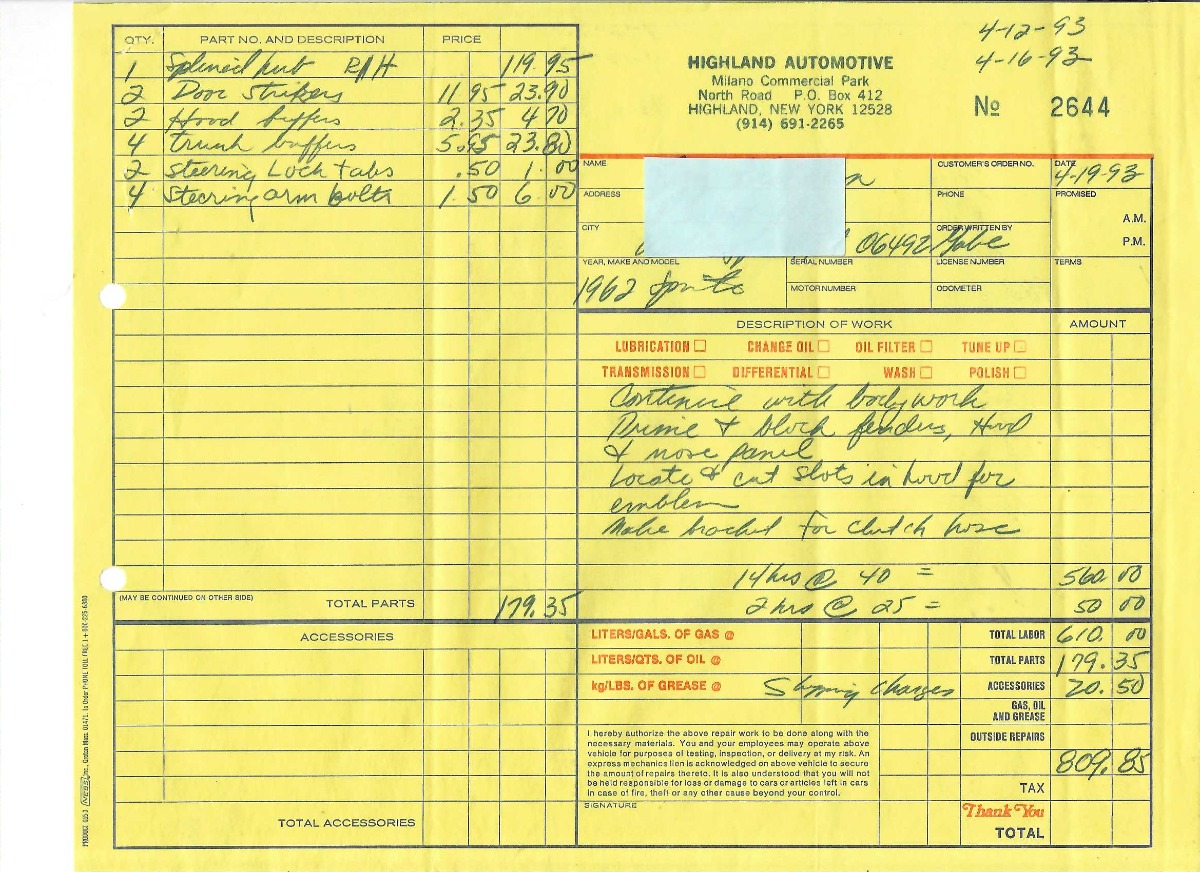 4-12-93
4-16-93
HIGHLAND AUTOMOTIVE
Milano Commercial Park
North Road P.O. Box 412
HIGHLAND, NEW YORK 12528
(914) 691-2265
No 2644
QTY. PART NO. AND DESCRIPTION PRICE
1 Splined hub R/H 119.95
2 Door strikers 11.95 23.90
2 Hood buffers 2.35 4 70
4 trunk buffers 5.95 23.80
2 steering Lock tabs .50 1.00
4 Steering arm bolts 1.50 6.00
(MAY BE CONTINUED ON OTHER SIDE)
TOTAL PARTS 179.35
ACCESSORIES
TOTAL ACCESSORIES
NAME
CUSTOMER'S ORDER NO.
DATE 4-19-93
ADDRESS
PHONE
PROMISED
A.M.
P.M.
CITY 06492
ORDER WRITTEN BY Gabe
YEAR, MAKE AND MODEL
1962
SERIAL NUMBER
LICENSE NUMBER
TERMS
MOTOR NUMBER
ODOMETER
DESCRIPTION OF WORK AMOUNT
LUBRICATION CHANGE OIL OIL FILTER TUNE UP
TRANSMISSION DIFFERENTIAL WASH POLISH
Continue with bodywork
Prime & block fenders, Hood
& nose panel
Locate & cut slots in hood for
emblem
Make bracket for clutch hose
14 hrs @ 40 = 560 00
2 hrs @ 25 = 50 00
LITERS/GALS. OF GAS @ TOTAL LABOR 610. 00
LITERS/QTS. OF OIL @ TOTAL PARTS 179.35
kg/LBS. OF GREASE @ Shipping charges ACCESSORIES 20.50
GAS, OIL
AND GREASE
OUTSIDE REPAIRS
809.85
TAX
Thank You
TOTAL
I hereby authorize the above repair work to be done along with the
necessary materials. You and your employees may operate above
vehicle for purposes of testing, inspection, or delivery at my risk. An
express mechanics lien is acknowledged on above vehicle to secure
the amount of repairs thereto. It is also understood that you will not
be held responsible for loss or damage to cars or articles left in cars
in case of fire, theft or any other cause beyond your control.
SIGNATURE